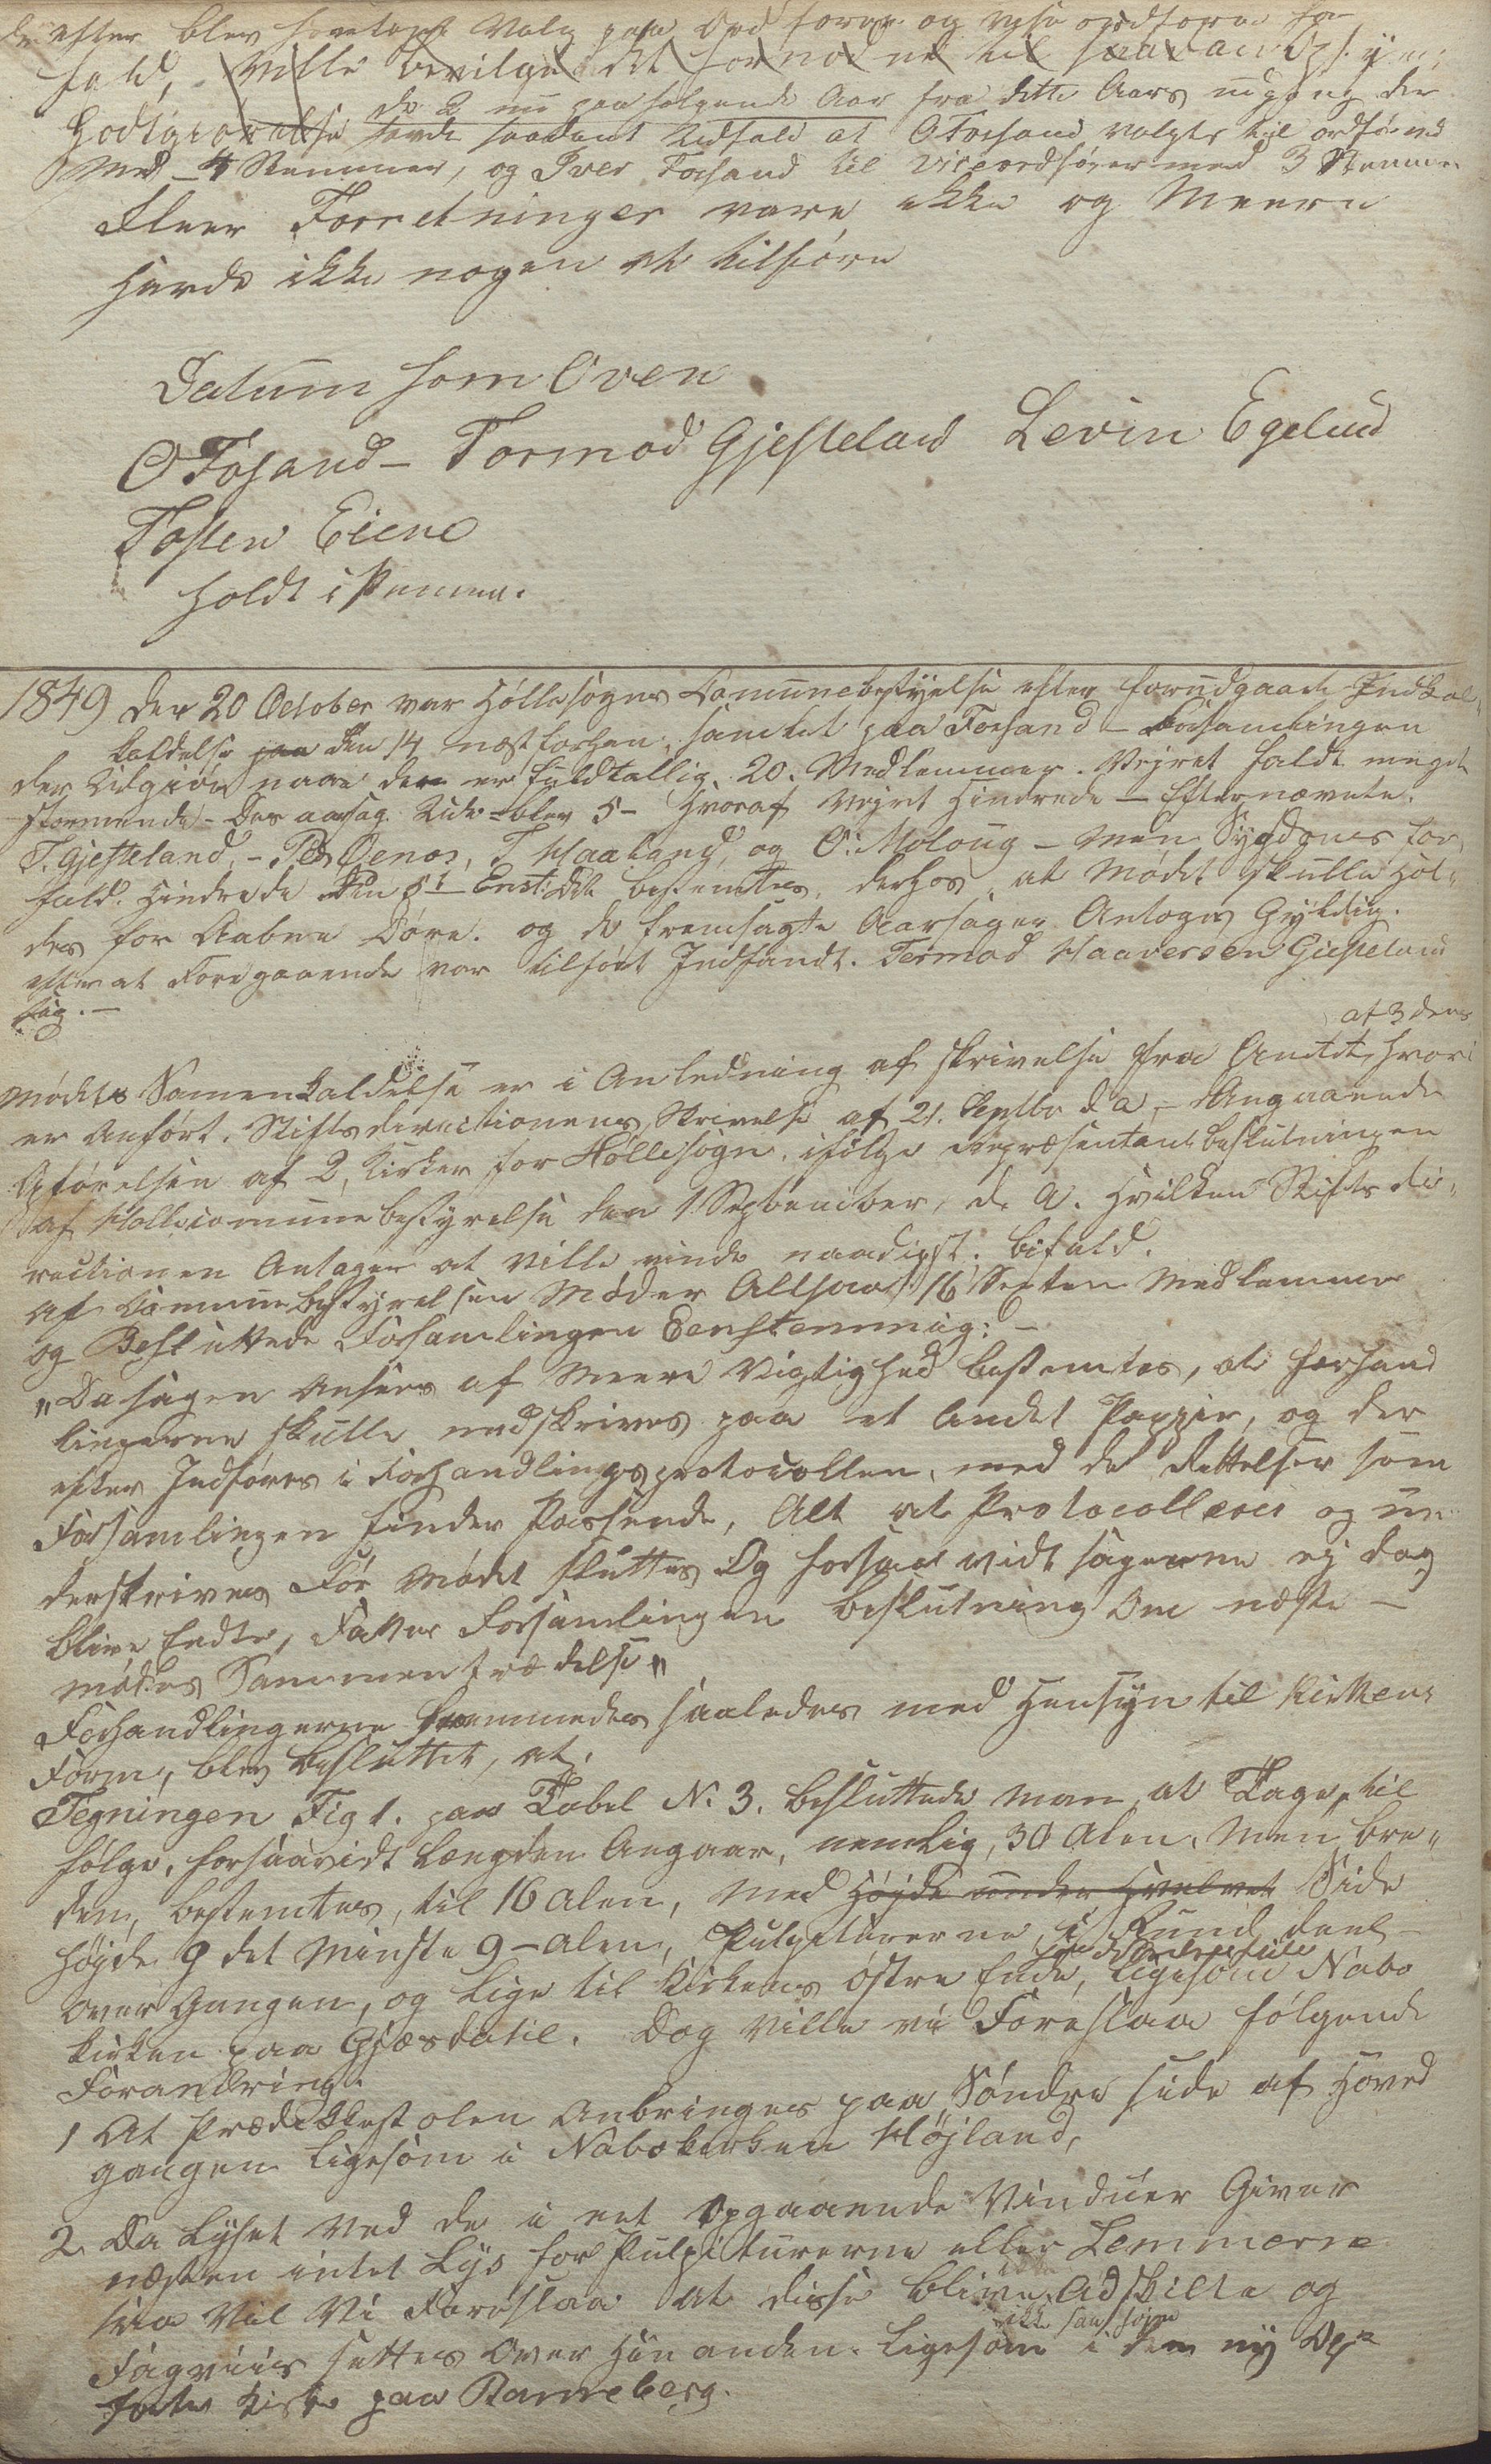 efter blev foretaget Valg paa Ordförer og viseordförer for
fald, Ville bevilge det fornødne til saadan
de 2 nu paafølgende Aar fra dette Aars udgang der
Godtgiörelse havde saadant Udfald at O Fosand valgtes til ordförer
Med 4 Stemmer, og Iver Fosand til Viceordförer med 3 Stemmer
Fleer Forretninger vare ikke og Meere
havde ikke nogen at tilföre
Datum som Oven
O Fosand - Tormod Gjesteland Levin Egelund
Tosten Eiene
holdt i Pennen.
1849 den 20 October var Höllesogns Comunebestyrelse efter forudgaaende Indkal-
kaldelse paa den 14 næstforhen, samlet paa Forsand - Forsamlingen
der Udgiör naar den er fuldtallig. 20. Medlemmer. Vejret faldt meget
stormende - Der blev 5 - hvoraf Vejret Hindrede - Efternævnte.
T. Gjesteland, - Peder Oenes, T Haaland, og O: Moloug - Men Sygdoms for-
fald. Hindrede den 5te Enst: Det bestemtes. derhos at Mödet skulle Hol-
des for Aabne Döre. og de fremsagte Aarsager Antoges Gyldig.
efter at Foregaaende var tilfört Indfandt. Tormod Haaversen Giesteland
sig. -
af 3 dens
Mödets Samenkaldelse er i Anledning af skrivelse fra Amtet, hvori
er Anfört. Stiftsdirectionens Skrivelse af 21. Septbr d a, - Angaaende
Opförelsen af 2, Kirker for Höllesogn, ifölge Repræsentantbeslutningen
af Hollecomunebestyrelse den 1 September, d. A. Hvilken Stiftsdi-
rectionen Antager at ville vinde naadigst. bifald.
Af Comunebestyrelsen Möder Altsaa 16 Sexten Medlemmer
og Besluttede Forsamlingen Eenstemmig: -
"Da sagen Ansees af Meere Vigtighed bestemtes, at forhand
lingerne skulle nedskrives paa et Andet Papir, og der
efter Indföres i Forhandlingsprotocollen, med de Rettelser som
Forsamlingen finder Passende, Alt at Protocolleres og un-
derskrives För Mödet sluttes Og forsaa vidt sagerne ej dog
blive Endte, Fatter Forsamlingen beslutning Om næste -
mödes Sammentrædelse"
Forhandlingerne fremmedes saaledes med Hensyn til Kirkens
Form, blev besluttet, at:
Tegningen Fig 1. paa Tabel N. 3. besluttede man, at Tage til
fölge, forsaavidt Længden Angaar, nemlig, 30 Alen. Men bre-
den, bestemtes, til 16 Alen, Med Höjde under Hvelvet Side
Höjde 9 det Minste 9 - Alen, Pulpiturerne i Rund deel -
Over Gangen, og Lige til Kirkens östre Ende, Ligesom Nabo
Kirken paa Gjæsdatil. Dog Ville vi Foreslaa fölgende
Forandring.
1 At Prædikkestolen Anbringes paa Söndre side af Hoved
gangen Ligesom i Nabokirken Höjland,
2. Da Lyset Ved de i eet Opgaaende Vinduer Giver
næsten intet Lys for Pulpiturerne eller Lemmerne
saa Vil Vi Foreslaa At disse blive Adskilte og
ikke saa höje
Fagviis settes Over hin anden. Ligesom i den ny Op-
förte Kirke paa Ranneberg.